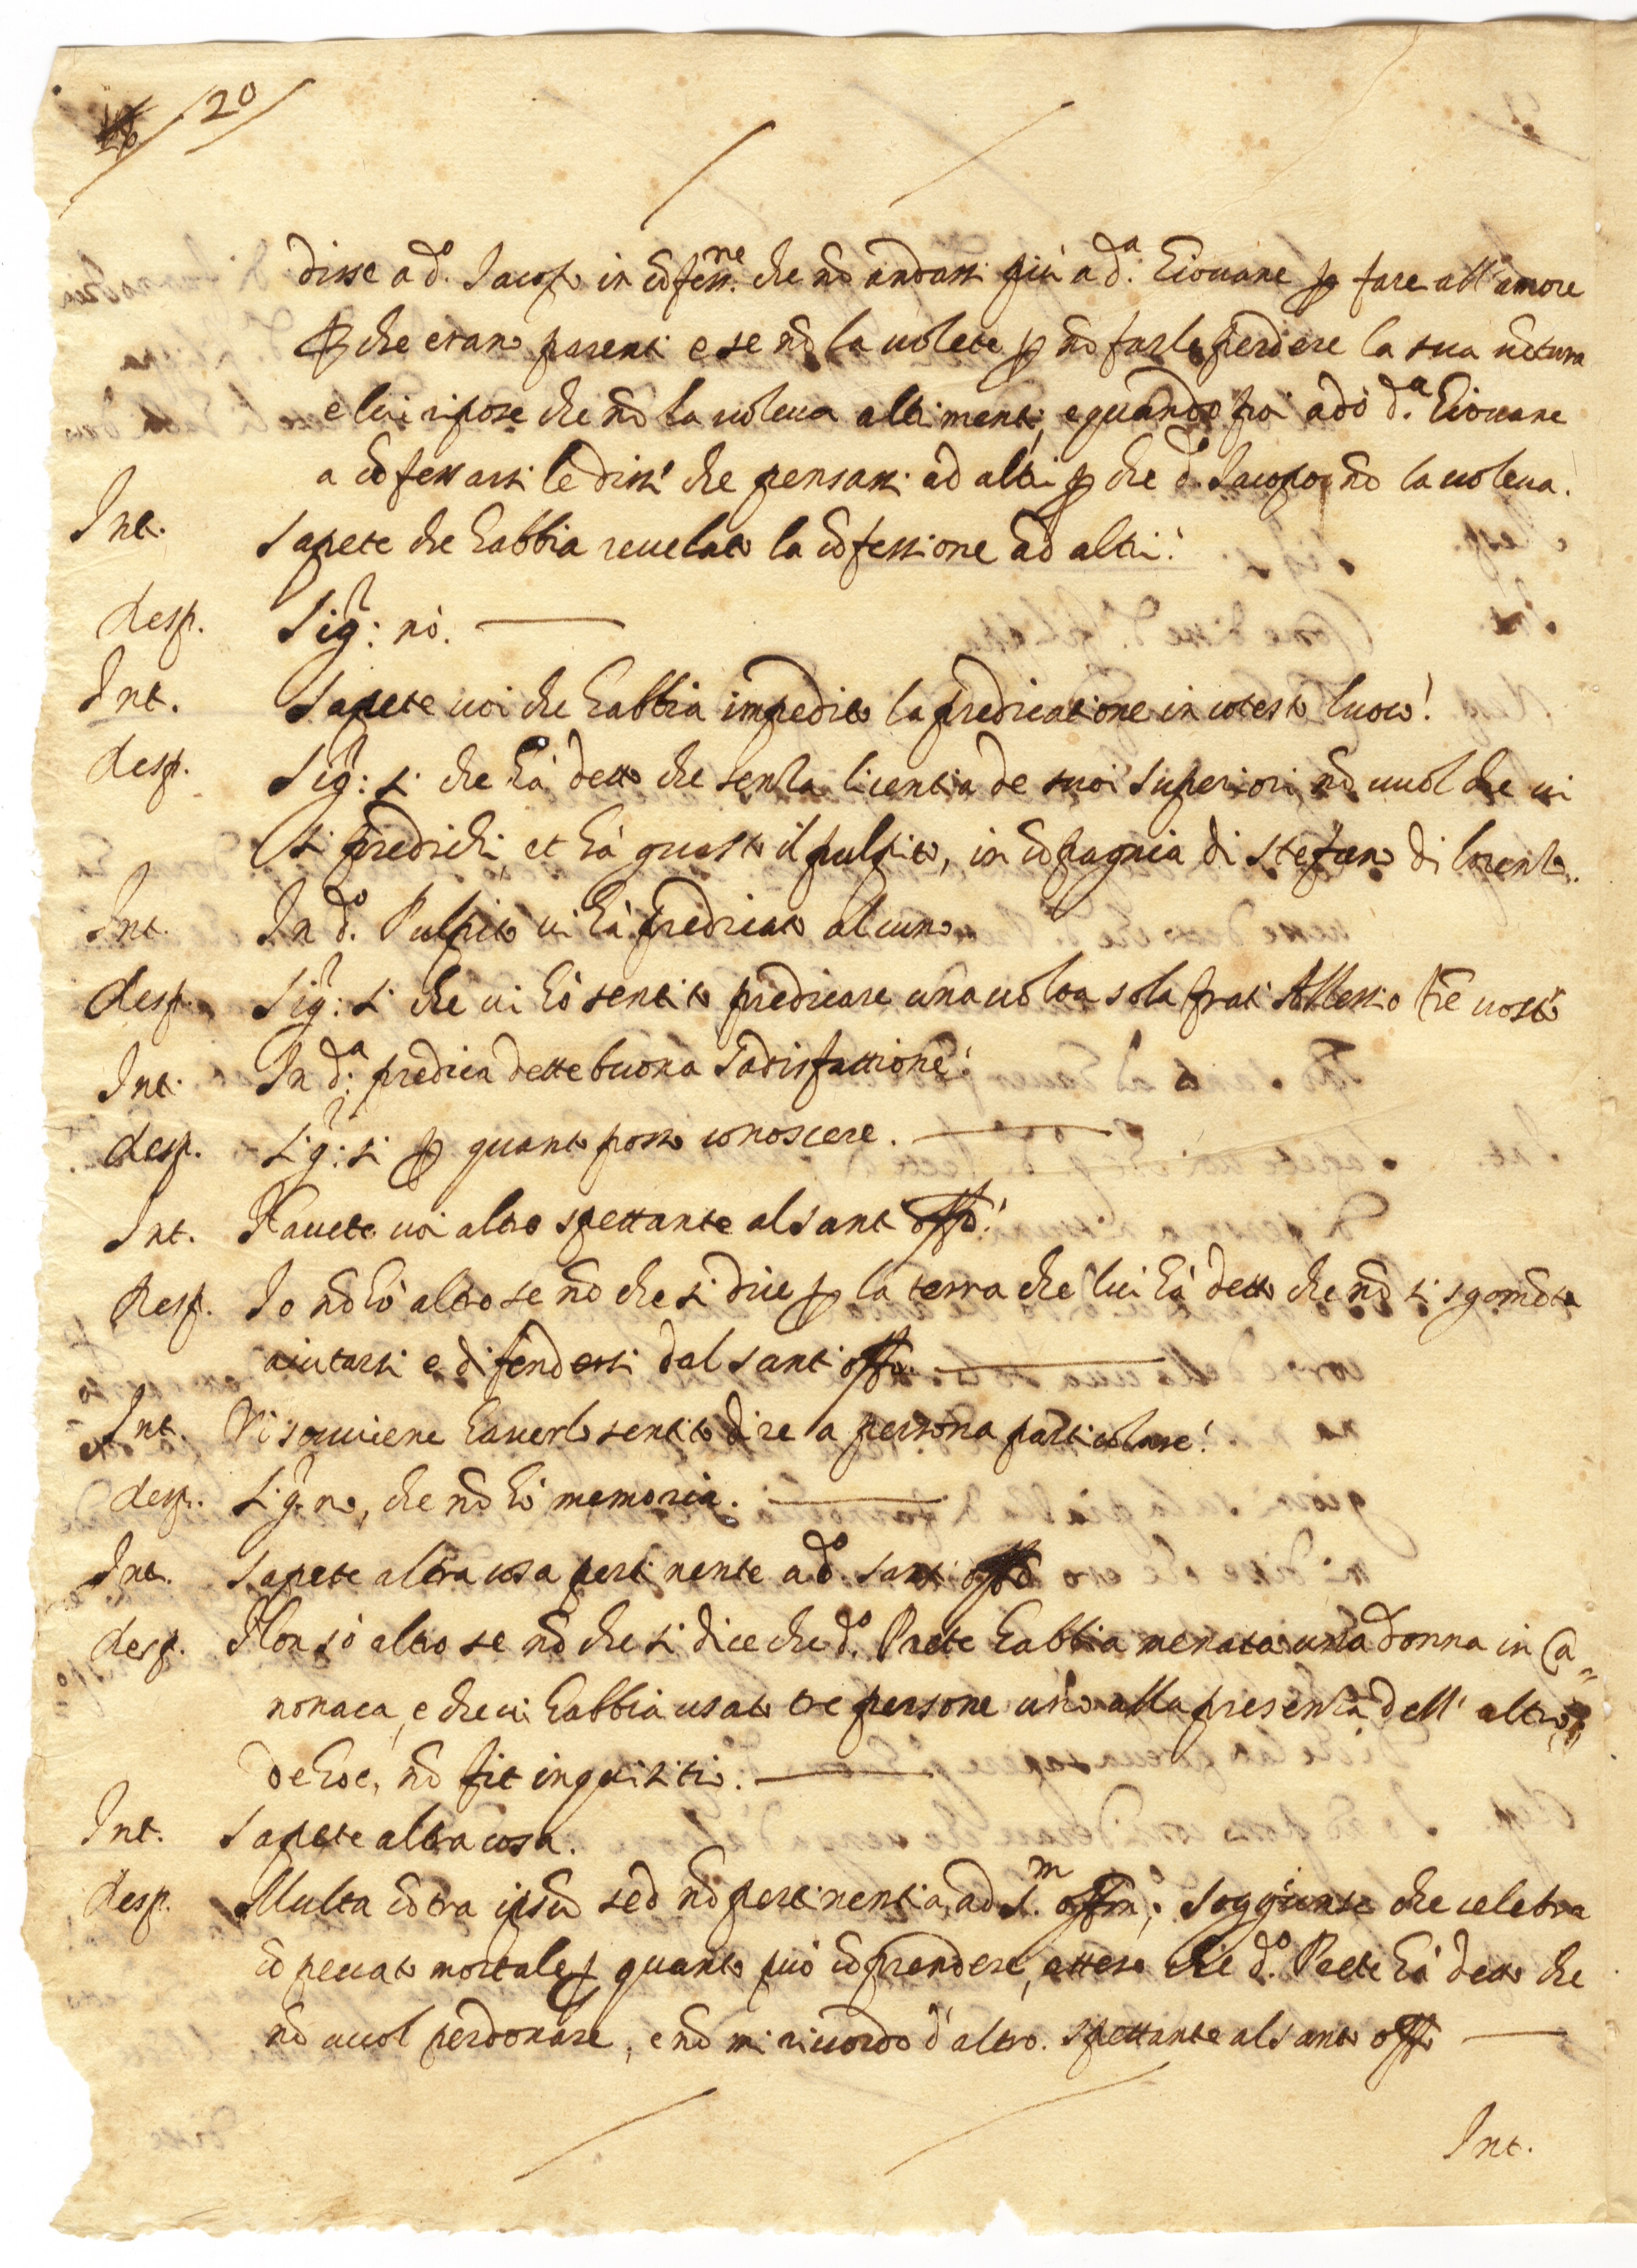 20
disse a d.º Jacopo in cõfess.ne che nõ andassi più a d.ª Giovane p fare all'amore
pche erano parenti e se nõ la volete p nõ farle perdere la sua uẽtura
e lui ripose che nõ la voleua altrimenti, e quando poi andò d.ª Giouane
a cõfessarsi le diss' che pensassi ad altri pche d.º Jacopo nõ la uoleua.
Int. Sapete che habbia reuelato la cõfessione ad altri?
Resp. Sig.r nò.
Int. Sapete uoi che habbia impedito la predicatione in cotesto luoco?
Resp. Sig.r si che hà detto che senza licentia de suoi Superiori nõ uuol che ui
si predichi, et hà guasto il pulpito, in cõpagnia di Stefano di Lorenzo.
Int. In d.º Pulpito ui hà predicato alcuno
Resp. Sig.r si che ui hò sentito predicare una uolta sola frat' Allessio frẽ uostº
Int. In d.ª predica dette buona Sadisfattione?
Resp. Sig.r si p quanto posso conoscere.
Int. Hauete uoi altro spettante al Sant' offº?
Resp. Io nõ hò altro se nõ che si dice p la terra che lui hà detto che nõ si sgomẽta
aiutarsi e difendersi dal sant' offº.
Int. Vi souuiene hauerlo sentito dire a persona particolare?
Resp. Sig.r no, che nõ hò memoria.
Int. Sapete altra cosa pertinente a d.º Sant' offº
Resp. Non sò altro se nõ che si dice che d.º Prete habbia menata una donna in Ca=
nonaca, e che ui habbia usato tre persone uno alla presenza dell' altro,
de hoc, nõ fit inquisitio.
Int. Sapete altra cosa.
Resp. Multa cõtra ipsũ sed nõ pertinentia ad S.m offm; Soggiunse che celebra
cõ peccato mortale p quanto può cõprendere, atteso che d.º Prete hà detto che
nõ uuol perdonare, e nõ mi ricordo d'altro spettante al santo offº
Int.